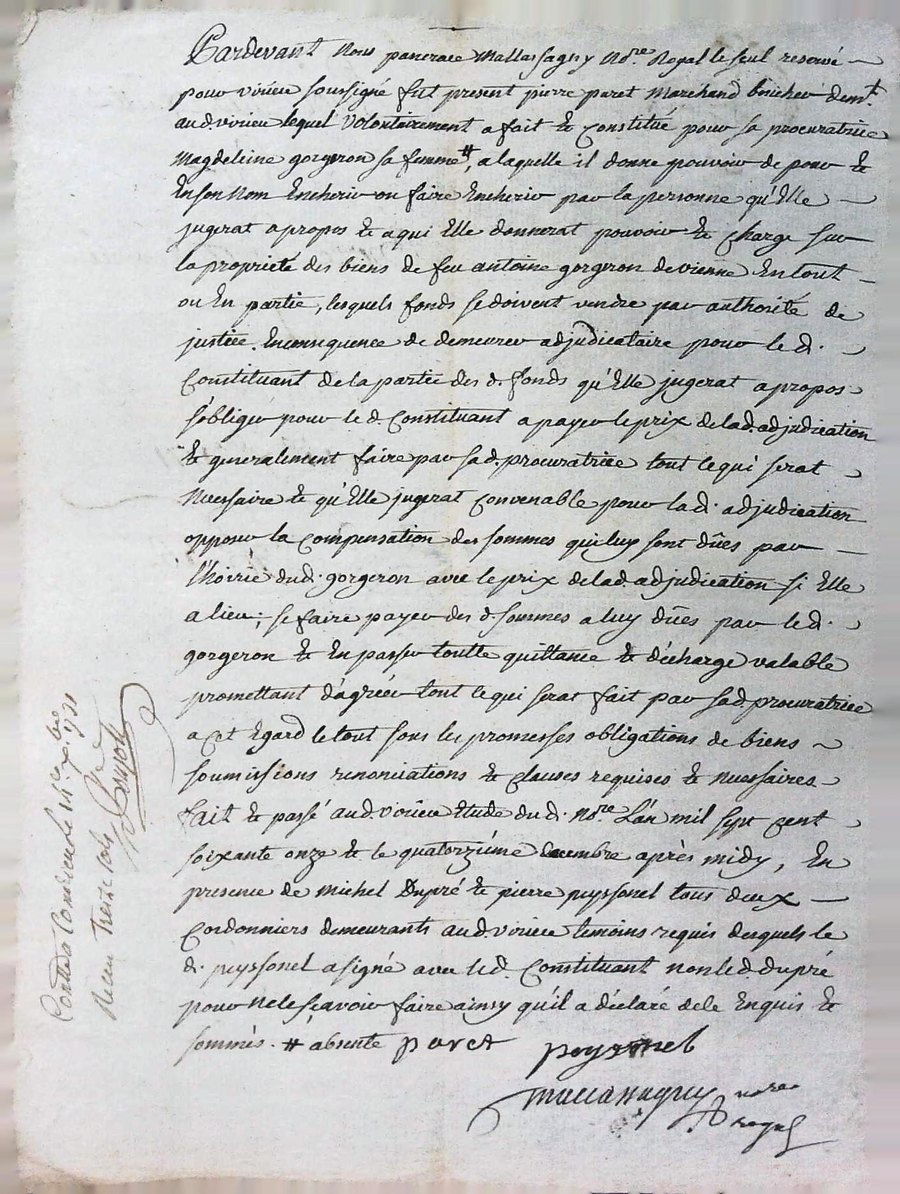 Pardevant Nous pancrace Mallassagny No.re Royal le seul reservé
pour virieu soussigné fut present pierre paret Marchand boucher dem.t
aud. virieu lequel volontairement a fait et constitué pour sa procuratrice
Magdeleine gorgeron sa femme #, a laquelle il donne pouvoir de pour et
En son Nom Encherir ou faire Encherir par la personne qu'Elle
jugerat apropos et a qui Elle donnerat pouvoir et charge sur
la proprieté des biens de feu antoine gorgeron de vienne En tout
ou En partie, lesquels fonds se doivent vendre par authorité de
justice. En consequence de demeurer adjudicataire pour le d.
Constituant de la partie des d. fonds qu'Elle jugerat apropos
s'obliger pour le d. Constituant a payer le prix de lad. adjudication
et generalement faire par sad. procuratrice tout ce qui serat
Necessaire et qu'Elle jugerat convenable pour la d. adjudication
opposer la compensation des sommes qui luy sont dûes par
l'hoirie dud. gorgeron avec le prix de lad. adjudication si Elle
a lieu; se faire payer des d. sommes a luy dûes par le d.
gorgeron et En passer toutte quittance et décharge valable
promettant d'agréer tout ce qui serat fait par sad. procuratrice
a cet Egard le tout sous les promesses obligations de biens
soumissions renonciations et clauses requises et necessaires
fait et passé aud. virieu Etude du d. No.re L'an mil sept cent
soixante onze et le quatorzième decembre après midy, En
presence de Michel Dupré et pierre peyssonel tous deux
Cordonniers demeurants aud. virieu temoins requis desquels le
d. peyssonel a signé avec led. Constituant non led. dupré
pour ne le sçavoir faire ainsy qu'il a déclaré de le Enquis et
sommés. # absente paret peyssonel
Mallassagny no.re
royal
Contlé a Condrieu le 14.e xbre 1771
Reçu treize sols